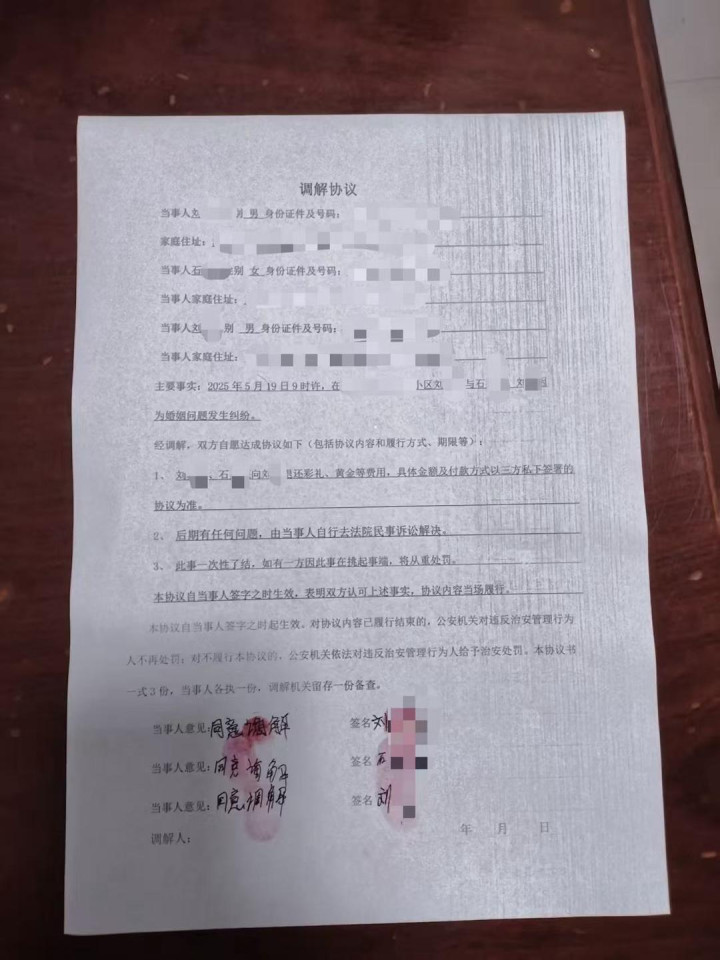 调解协议
当事人刘 别 男 身份证件及号码：
家庭住址：
当事人石 性别 女 身份证件及号码：
当事人家庭住址：
当事人刘 别 男 身份证件及号码：
当事人家庭住址：
主要事实：2025年5月19日9时许，在 小区刘 与石 刘
为婚姻问题发生纠纷。
经调解，双方自愿达成协议如下（包括协议内容和履行方式、期限等）：
1、 刘 、石 向刘 退还彩礼、黄金等费用，具体金额及付款方式以三方私下签署的
协议为准。
2、 后期有任何问题，由当事人自行去法院民事诉讼解决。
3、 此事一次性了结，如有一方因此事在挑起事端，将从重处罚。
本协议自当事人签字之时生效，表明双方认可上述事实，协议内容当场履行。
本协议自当事人签字之时起生效。对协议内容已履行结束的，公安机关对违反治安管理行为
人不再处罚；对不履行本协议的，公安机关依法对违反治安管理行为人给予治安处罚。本协议书
一式3份，当事人各执一份，调解机关留存一份备查。
当事人意见：同意调解 签名 刘
当事人意见：同意调解 签名 石
当事人意见：同意调解 签名 刘
调解人： 年 月 日